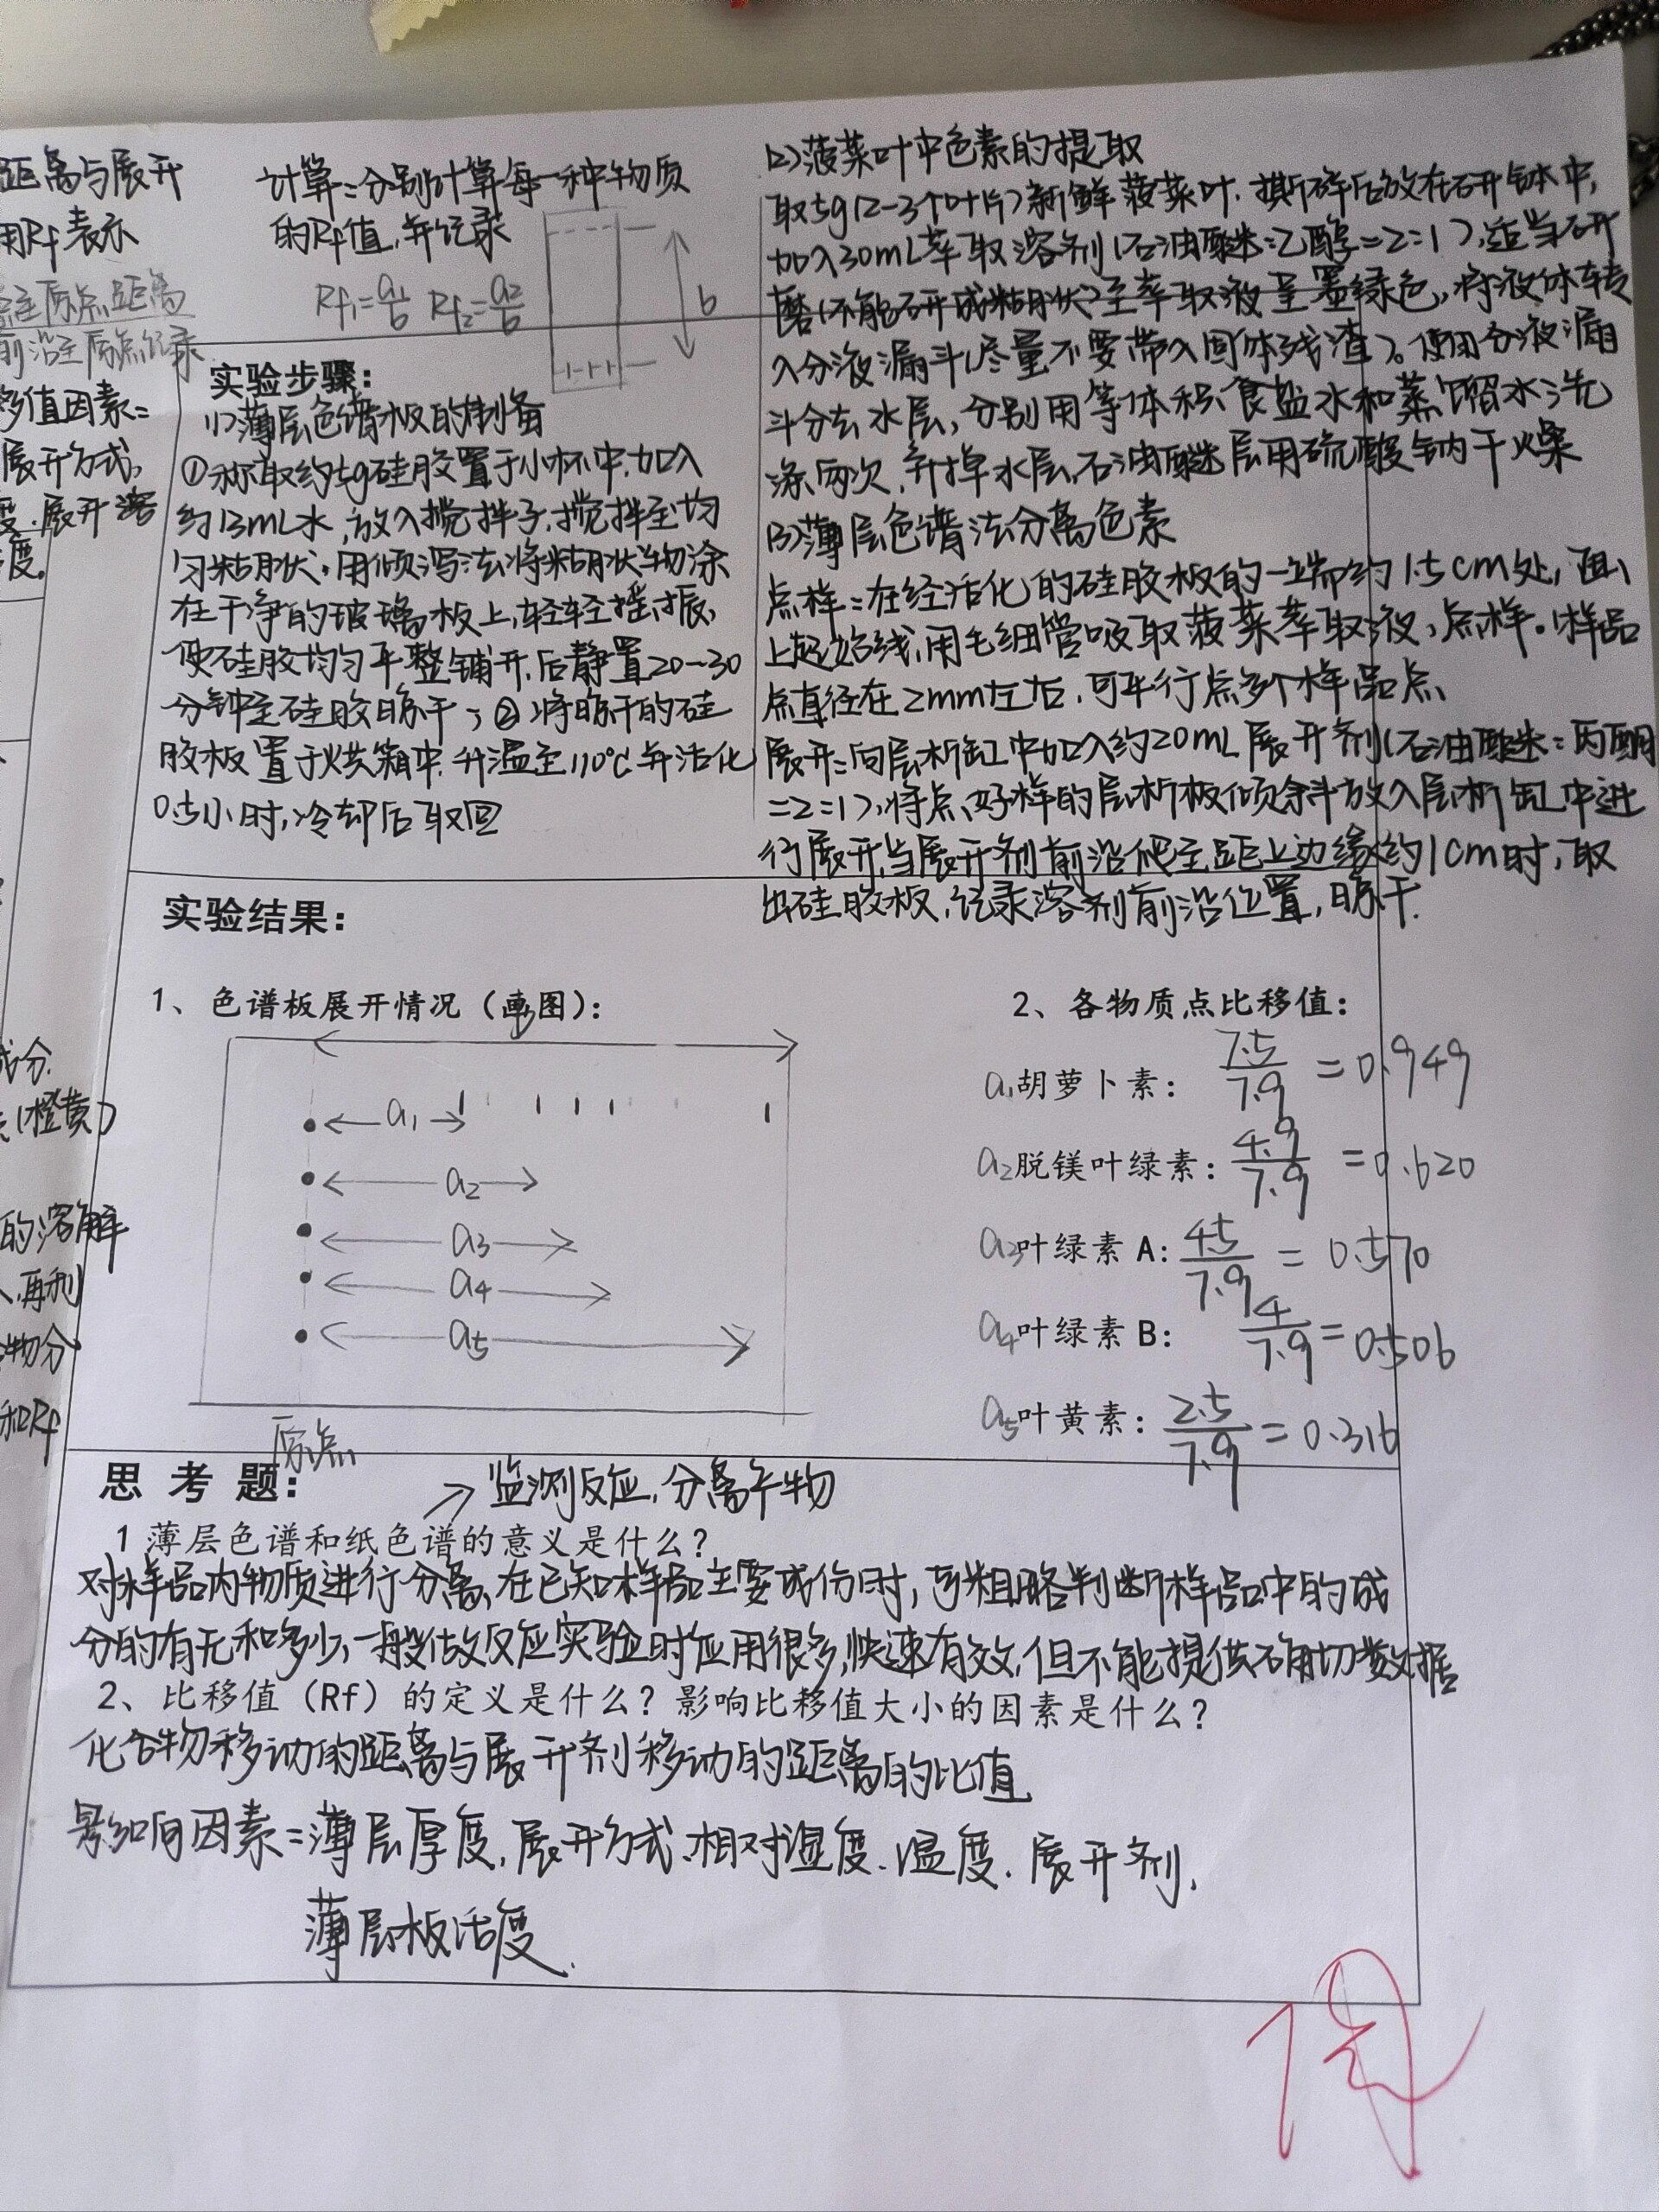 距离与展开
用Rf表示
至原点距离
前沿至原点记录
移值因素:
展开方式,
度.展开溶
度.
成分.
(橙黄)
的溶解
、再利
物分
和Rf
计算:分别计算每一种物质
的Rf值,并记录
Rf₁=a₁/b Rf₂=a₂/b
b
实验步骤:
(1)薄层色谱板的制备
①称取约5g硅胶置于小杯中,加入
约13mL水,放入搅拌子,搅拌至均
匀粘稠状,用倾泻法将粘稠状物涂
在干净的玻璃板上,轻轻摇振,
使硅胶均匀平整铺开,后静置20-30
分钟至硅胶晾干;②将晾干的硅
胶板置于烘箱中,升温至110℃并活化
0.5小时,冷却后取回
(2)菠菜叶中色素的提取
取5g(2-3个叶片)新鲜菠菜叶.撕碎后放在研钵中,
加入30mL萃取溶剂(石油醚:乙醇=2:1),适当研
磨(不能研成粘稠状)至萃取液呈墨绿色,将液体转
入分液漏斗(尽量不要带入固体残渣)。使用分液漏
斗分去水层,分别用等体积食盐水和蒸馏水洗
涤两次,弃掉水层,石油醚层用硫酸钠干燥
(3)薄层色谱法分离色素
点样:在经活化的硅胶板的一端约1.5cm处,画
上起始线,用毛细管吸取菠菜萃取液,点样。(样品
点直径在2mm左右,可平行点多个样品点、
展开:向层析缸中加入约20mL展开剂(石油醚:丙酮
=2:1),将点好样的层析板倾斜放入层析缸中进
行展开,当展开剂前沿爬至距上边缘约1cm时,取
出硅胶板,记录溶剂前沿位置,晾干.
实验结果:
1、色谱板展开情况(画图):
a₁
a₂
a₃
a₄
a₅
原点
2、各物质点比移值:
a₁胡萝卜素: 7.5/7.9=0.949
a₂脱镁叶绿素: 4.9/7.9=0.620
a₃叶绿素 A: 4.5/7.9=0.570
a₄叶绿素 B: 4/7.9=0.506
a₅叶黄素: 2.5/7.9=0.316
思 考 题:
→监测反应,分离产物
1 薄层色谱和纸色谱的意义是什么?
对样品内物质进行分离,在已知样品主要成份时,可粗略判断样品中的成
分的有无和多少,一般做反应实验时应用很多,快速有效,但不能提供确切数据
2、比移值(Rf)的定义是什么?影响比移值大小的因素是什么?
化合物移动的距离与展开剂移动的距离的比值
影响因素:薄层厚度,展开方式、相对湿度.温度.展开剂,
薄层板活度.